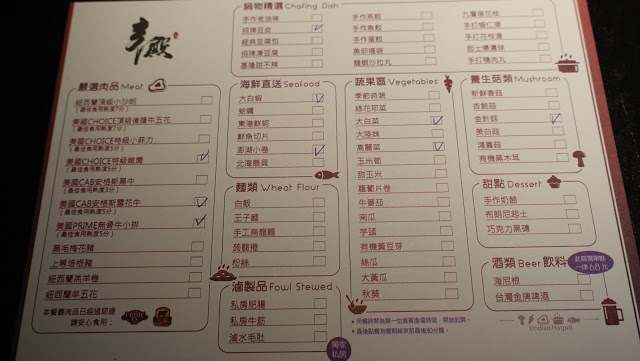 鍋物精選 Chafing Dish
手作老油條
招牌豆皮
經典豆腐包
招牌凍豆腐
基隆甜不辣
手作燕餃
手作魚餃
手作蛋餃
魚卵福袋
龍蝦沙拉丸
九層塔花枝
手打蝦仁漿
手打花枝漿
起士爆漿球
手打豬肉丸
嚴選肉品 Meat
紐西蘭頂級小沙朗
(最佳食用熟度7分)
美國CHOICE頂級後腰牛五花
(最佳食用熟度7分)
美國CHOICE特級小菲力
(最佳食用熟度5分)
美國CHOICE特級嫩肩
(最佳食用熟度5分)
美國CAB安格斯黑牛
(最佳食用熟度3分)
美國CAB安格斯雪花牛
(最佳食用熟度5分)
美國PRIME無骨牛小排
(最佳食用熟度5分)
黑毛梅花豬
上等培根豬
紐西蘭羔羊卷
紐西蘭羊五花
本餐廳肉品已經過認證
請安心食用：
海鮮直送 Seafood
大白蝦
蛤蠣
東港鮮蚵
鮮魚切片
澎湖小卷
北海扇貝
麵類 Wheat Flour
白飯
王子麵
手工烏龍麵
蒟蒻捲
粉絲
滷製品 Fowl Stewed
私房肥腸
私房牛筋
滷水毛肚
獨家
私房
蔬果區 Vegetables
季節時蔬
綠花那菜
大白菜
大陸妹
高麗菜
玉米筍
甜玉米
蘿蔔片卷
牛番茄
南瓜
芋頭
有機黃豆芽
絲瓜
大黃瓜
秋葵
養生菇類 Mushroom
新鮮香菇
杏鮑菇
金針菇
美白菇
鴻喜菇
有機黑木耳
甜點 Dessert
手作奶酪
布朗尼起士
巧克力黑磚
酒類 Beer 飲料
此區需單點
一律68元
海尼根
台灣金牌啤酒
Xindian Hotpot